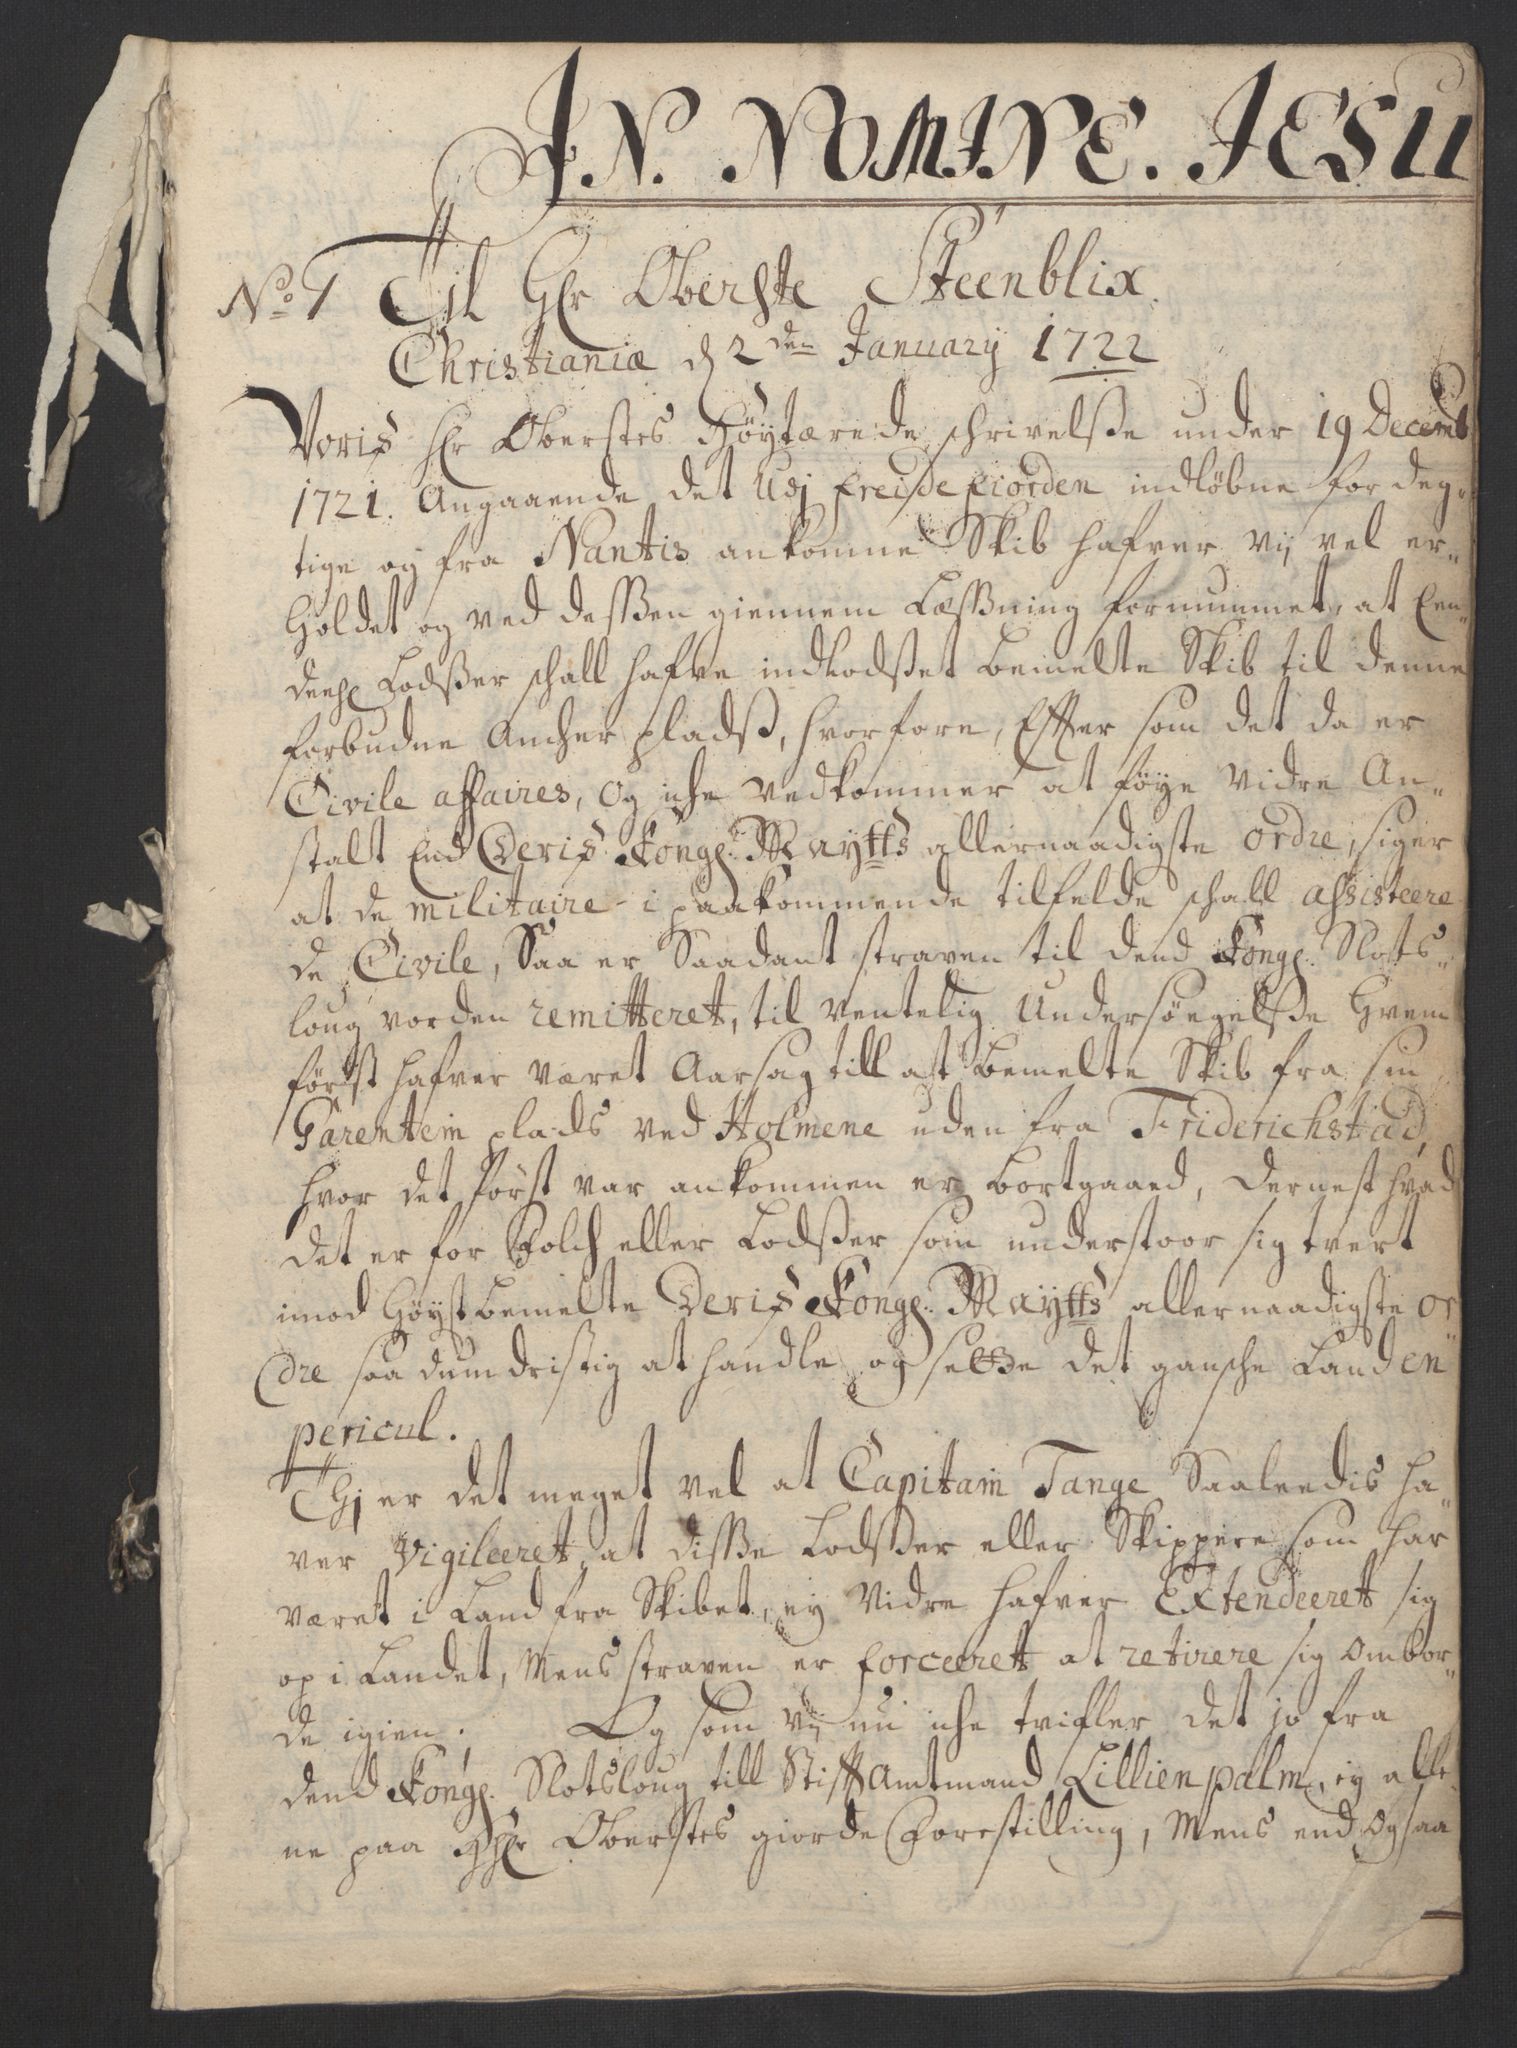 IN. NOMINE. IESU
No 1 Til Hr Oberste Steenblix.
Christianiæ d 2den January 1722
Voris Hr Oberstes Höytærede schrivelsse under 19 Decemb
1721. Angaaende det Udj freidefiorden indløbne fordeg-
tige og fra Nantis ankomne Skib hafver vij vel er-
holdet og ved dessen giennem Læssning fornummet, at Een
deehl Lodsser schall hafve indlodsset bemelte Skib til denne
forbudne Ancher pladss, hvorfore, Efter som det da er
Civile affaires, og iche vedkommer at føye vidre An-
stalt End Deris Kongl. Maytts allernaadigste ordre, siger
at de militaire i paakommende tilfelde schall assisteere
de Civile, Saa er Saadant straxen til dend Kongl. Slots-
loug vorden remitteret, til ventelig Undersøegelsse Hvem
først hafver været Aarsag till at bemelte Skib fra sin
Carentein plads ved Holmene uden fra Friderichstad,
hvor det först var ankommen er bortgaaed, dernest hvad
det er for Folch eller Lodsser som understoor sig tvert
imod Höystbemelte Deris Kongl. Maytts allernaadigste or
dre saa dumdristig at handle og sette det gansche Land en
pericul.
Thj er det meget vel at Capitain Tange Saaleedis ha-
ver Vigileeret, at disse Lodsser eller Skippere som har
været i Land fra Skibet, ey Vidre hafver Extendeeret sig
op i Landet, Mens straxen er forceeret at retirere sig ombor-
de igien. Og som vij nu iche tvifler det jo fra
dend Kongl. Slotsloug till Stiftamtmand Lillienpalm, ey alle
ne paa Hr Oberstes giorde Forestilling, Mens end ogsaa